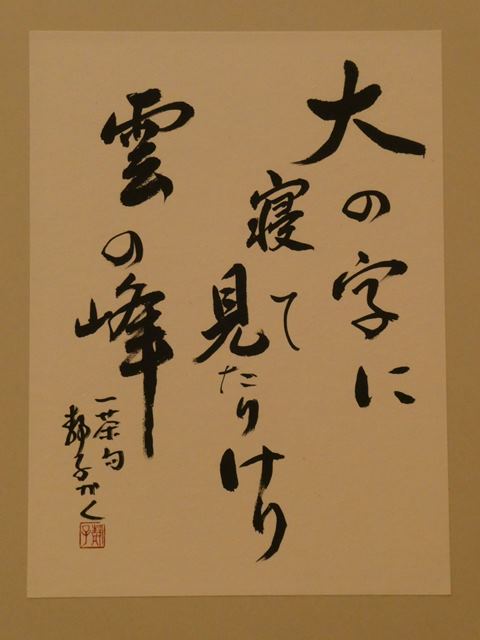 大の字に
寝て
見たりけり
雲の峰
一茶句
静子かく
静子